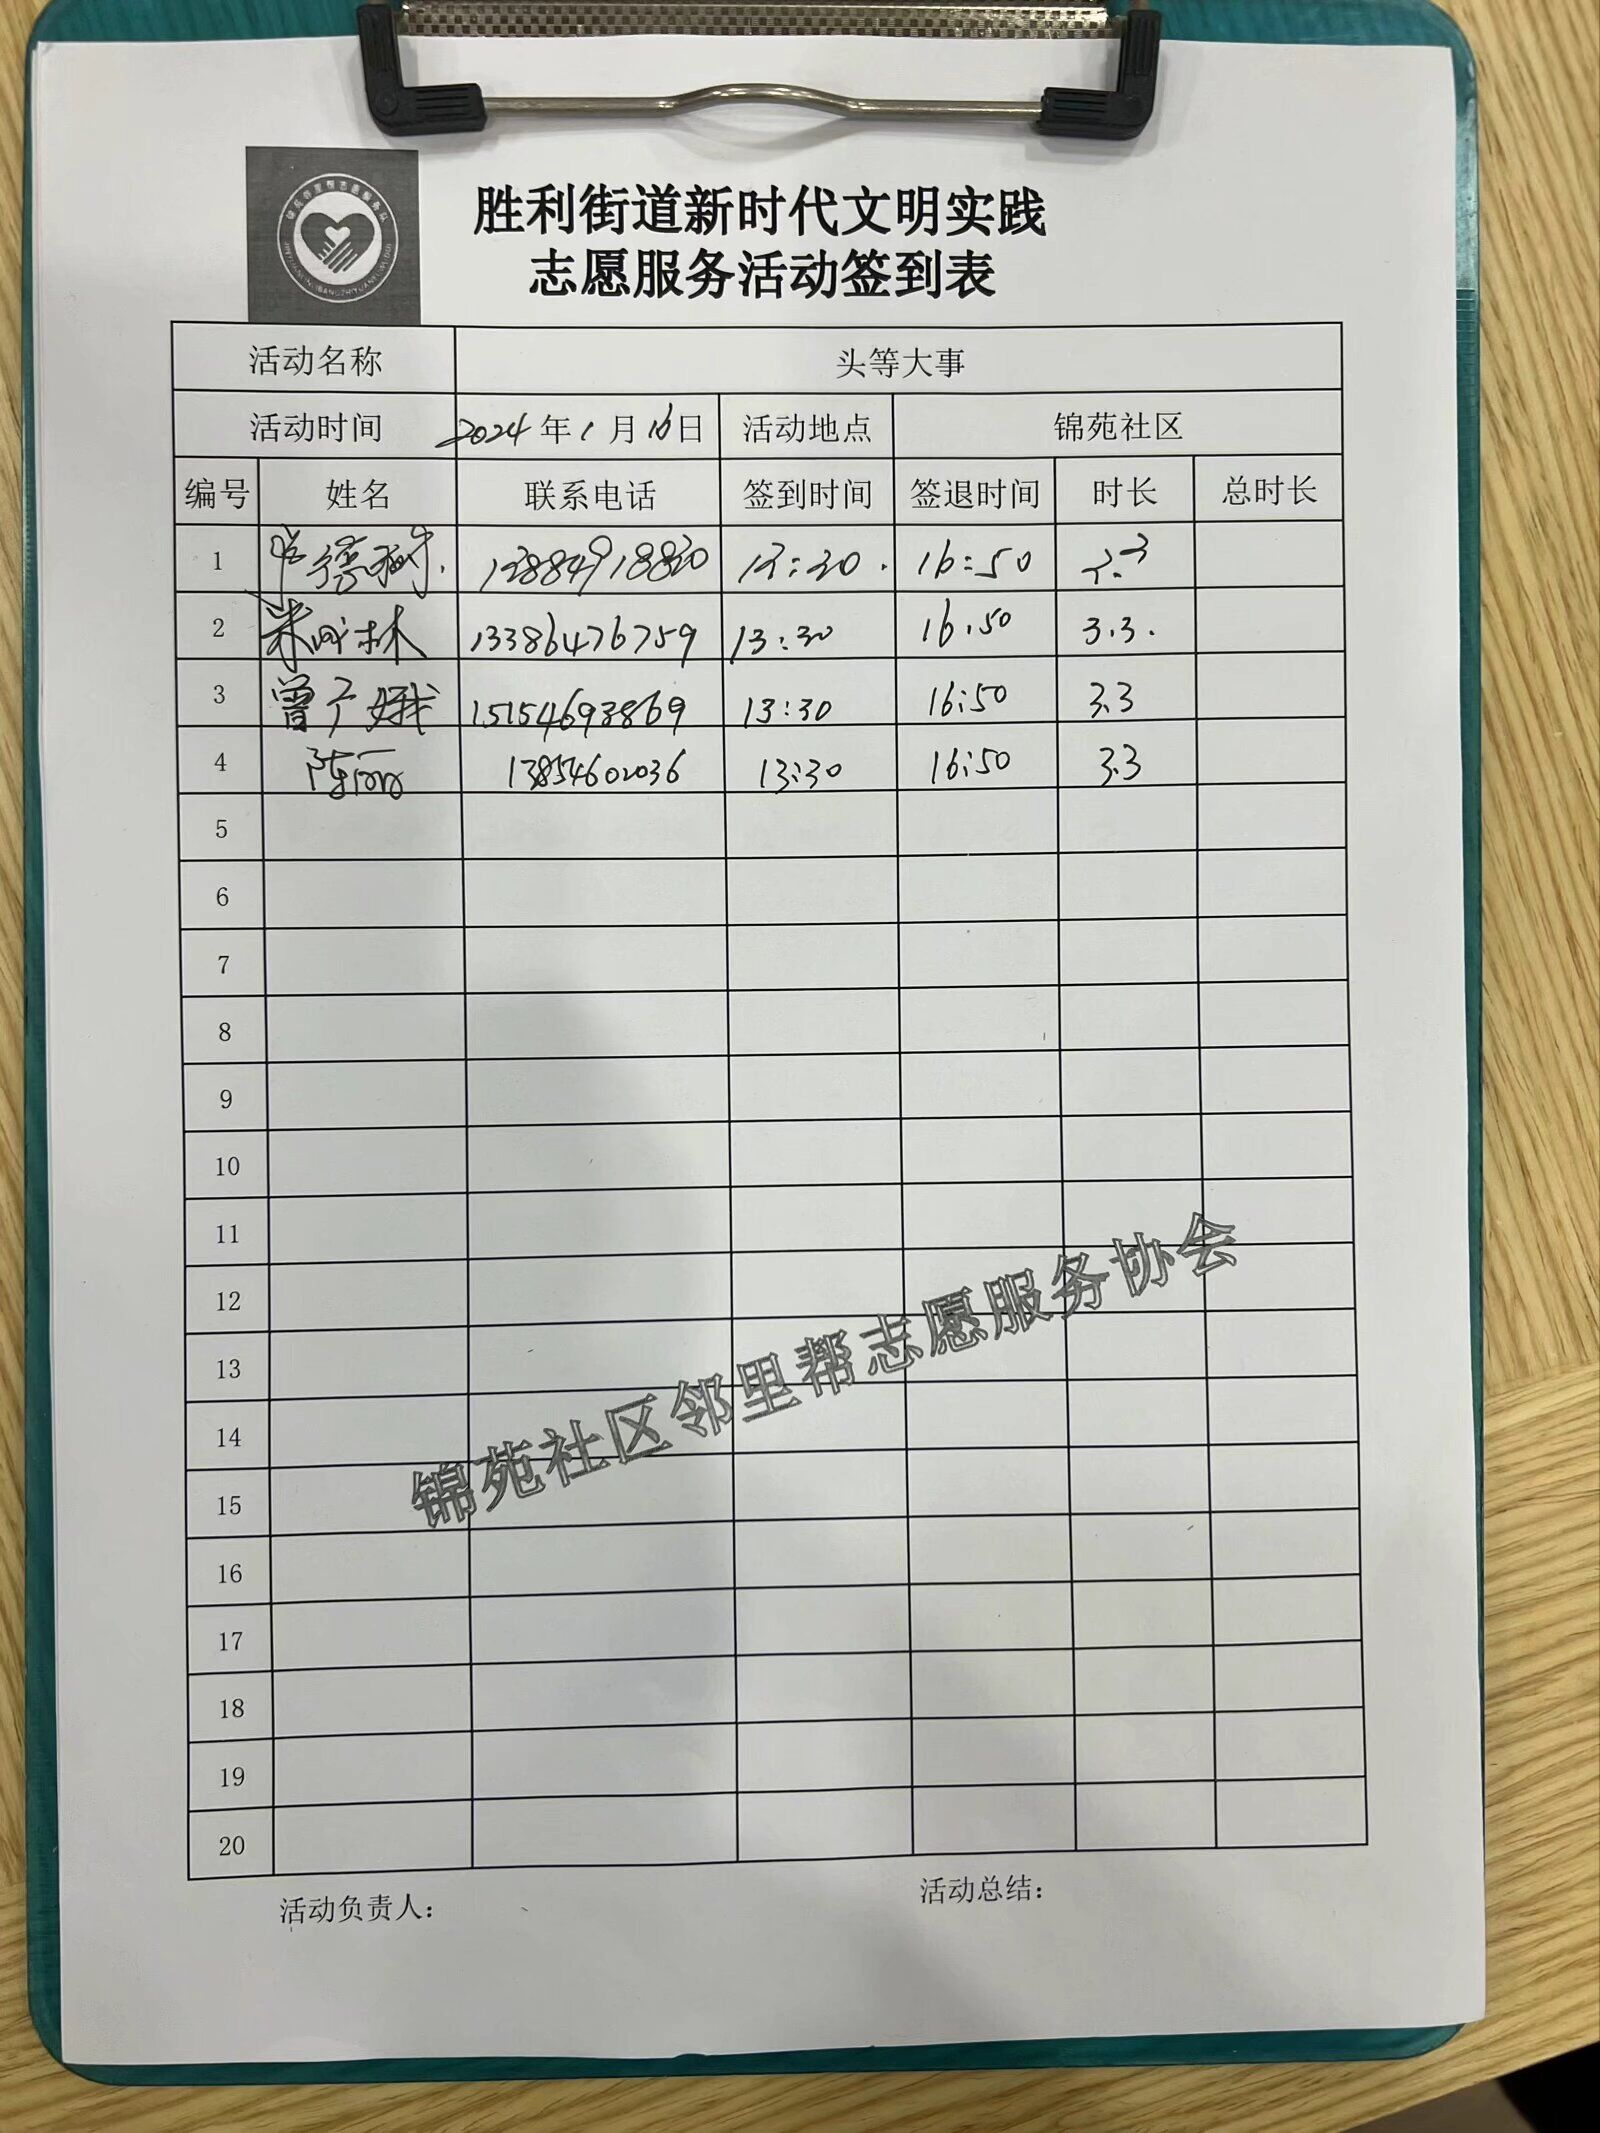 锦苑邻里帮志愿服务队
胜利街道新时代文明实践
志愿服务活动签到表
活动名称 头等大事
活动时间 2024年1月16日 活动地点 锦苑社区
编号 姓名 联系电话 签到时间 签退时间 时长 总时长
1 13884918820 13:30. 16:50 3.3
2 林 13386476759 13:30 16.50 3.3.
3 曾广娥 15154693869 13:30 16:50 3.3
4 陈丽 13854602036 13:30 16:50 3.3
5
6
7
8
9
10
11
12
13
14
15
16
17
18
19
20
锦苑社区邻里帮志愿服务协会
活动负责人： 活动总结：